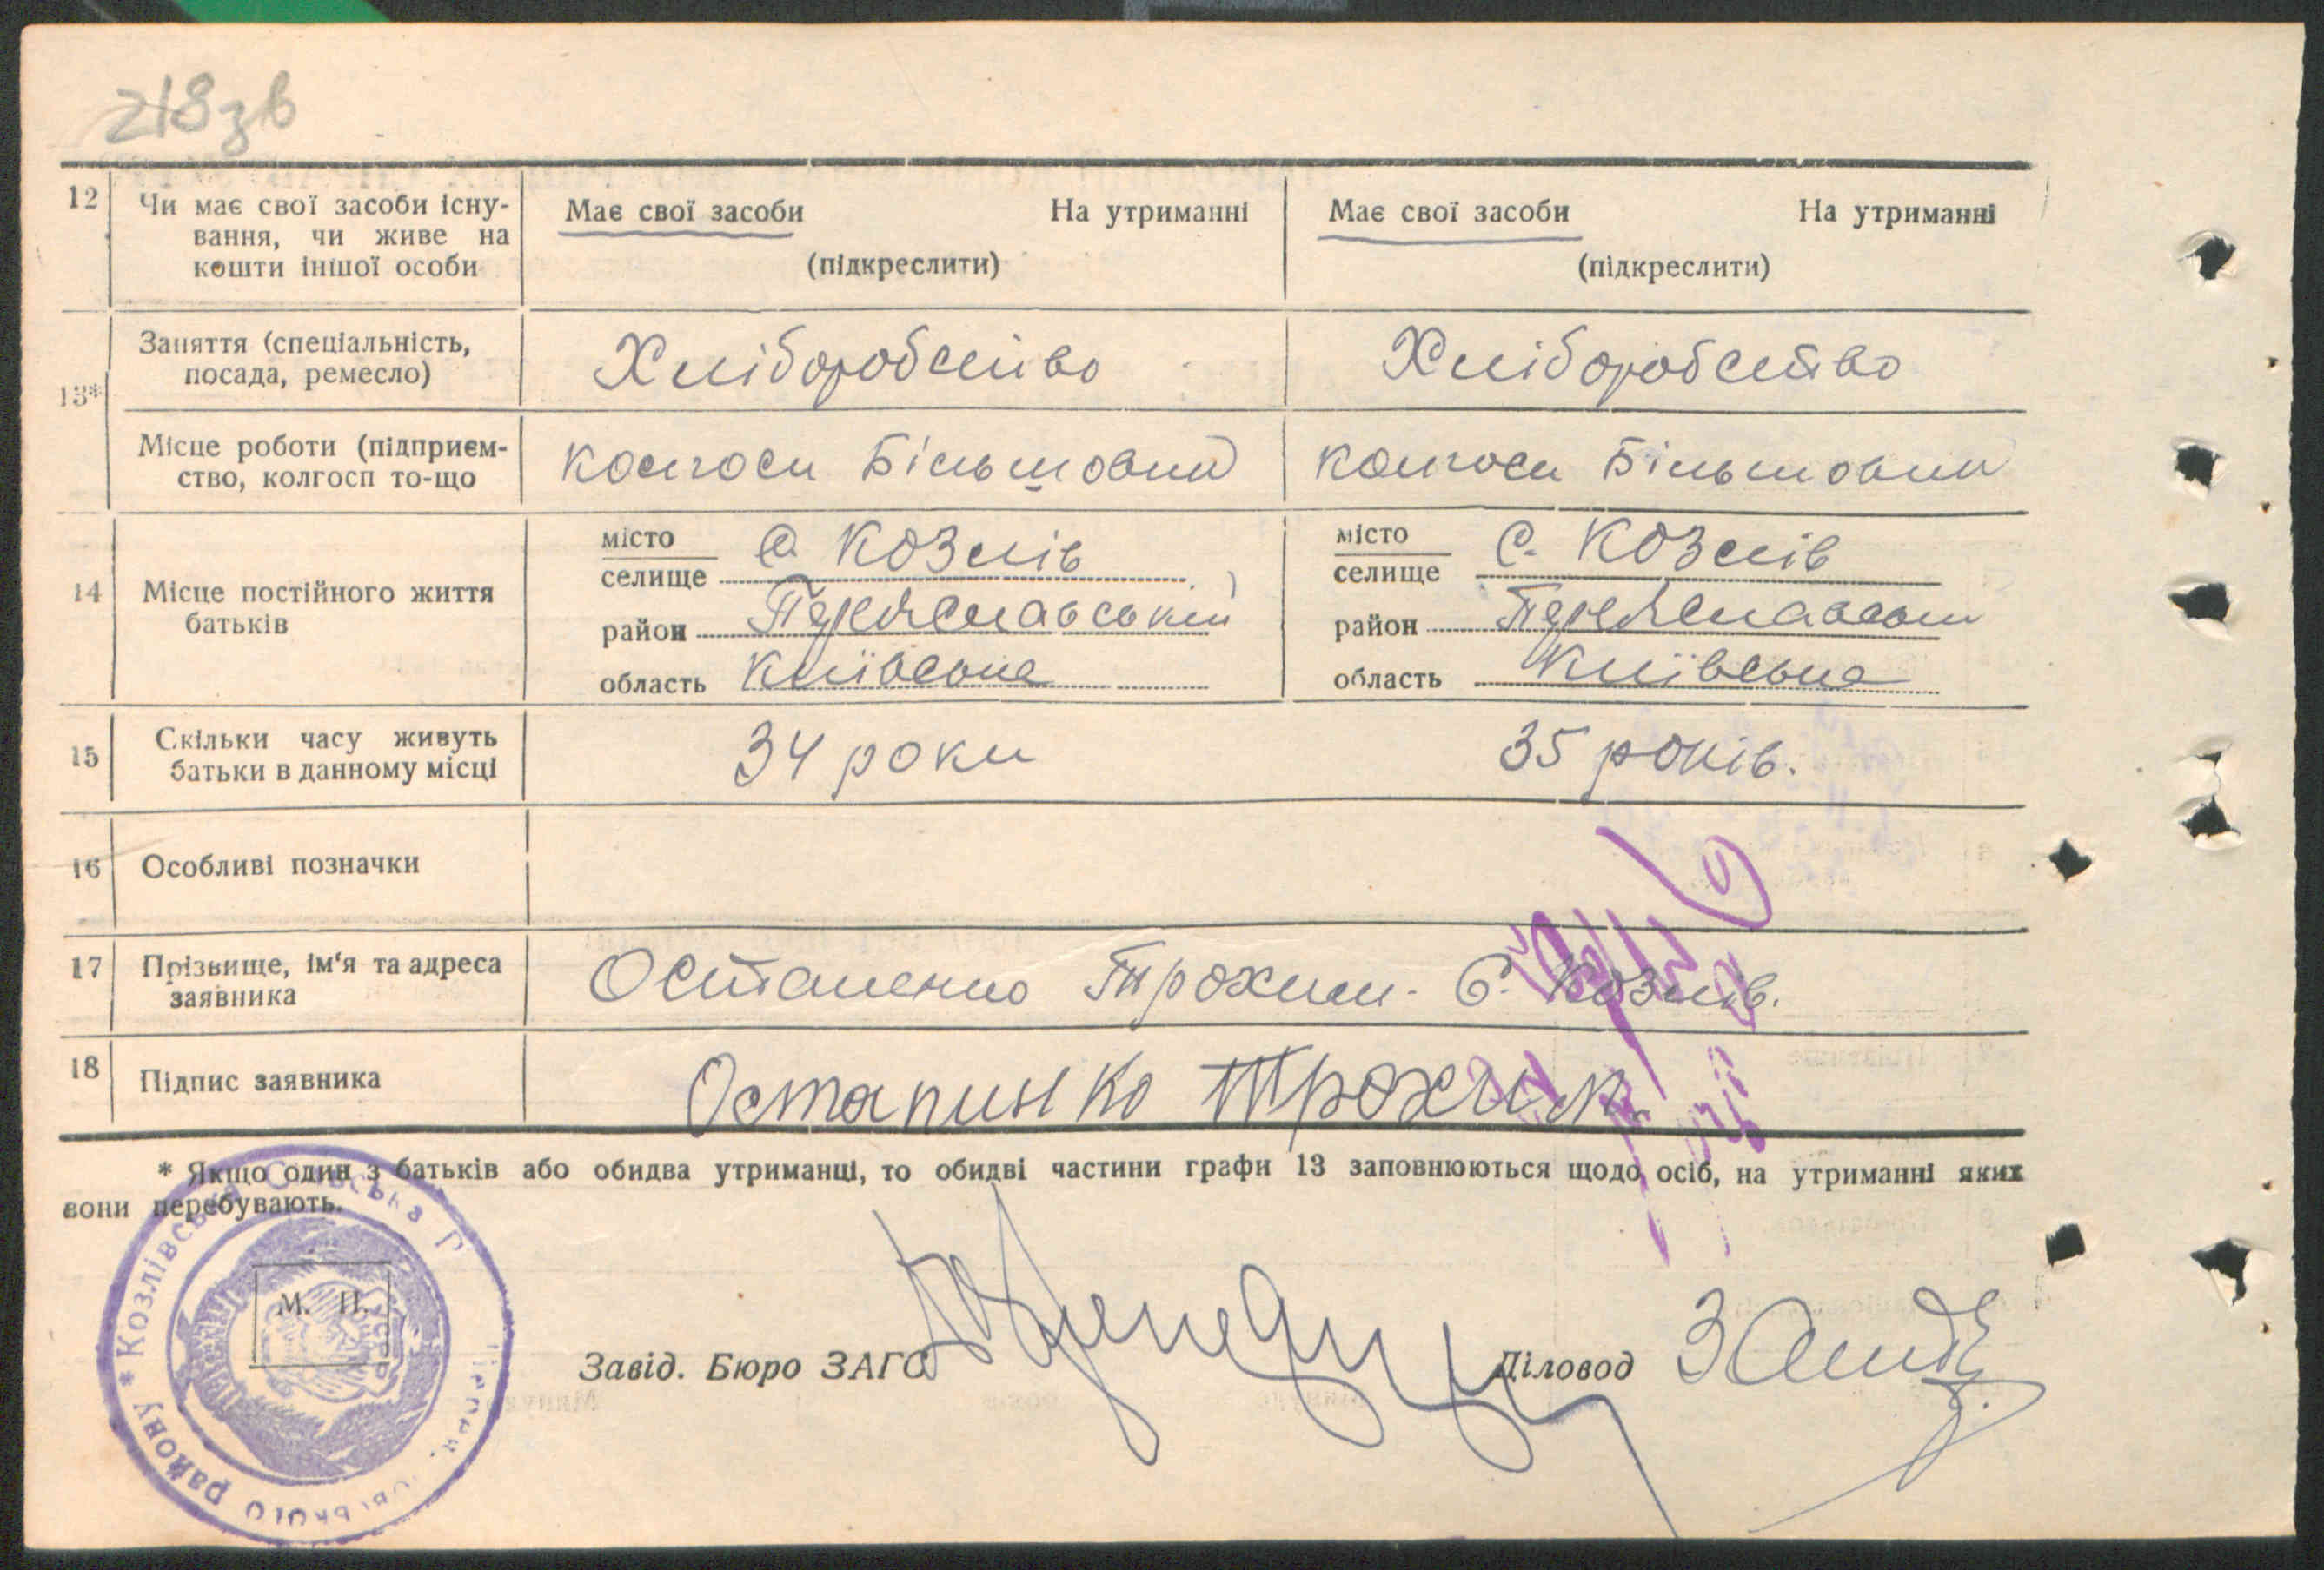 218зв
12 Чи має свої засоби існу- Має свої засоби На утриманні Має свої засоби На утриманні
вання, чи живе на
кошти іншої особи (підкреслити) (підкреслити)
13* Заняття (спеціальність, Хліборобство Хліборобство
посада, ремесло)
Місце роботи (підприєм- колгосп Більшовик колгосп Більшовик
ство, колгосп то-що
14 Місце постійного життя
батьків
місто селище с. Козлів місто селище С. Козлів
район Переяславський район Переяславськи
область Київська область Київська
15 Скільки часу живуть 34 роки 35 років.
батьки в данному місці
16 Особливі позначки
17 Прізвище, ім'я та адреса Остапенко Трохим. С. Козлів.
заявника
18 Підпис заявника Остапинко Трохим.
* Якщо один з батьків або обидва утриманці, то обидві частини графи 13 заповнюються щодо осіб, на утриманні яких
вони перебувають.
М. П.
Козлівська Сільська
району
Завід. Бюро ЗАГС Діловод